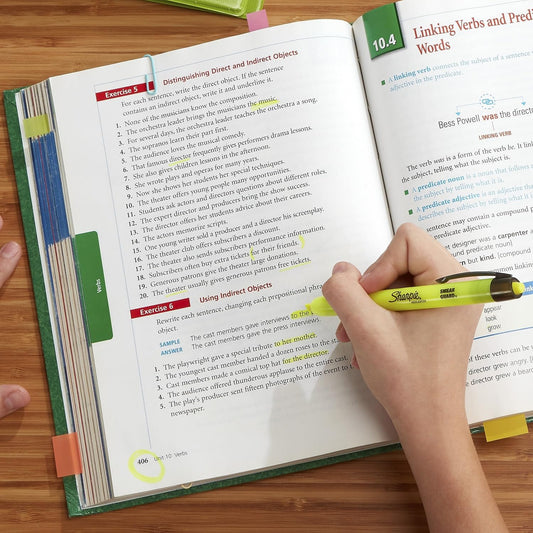 Exercise 5 Distinguishing Direct and Indirect Objects
For each sentence, write the direct object. If the sentence
contains an indirect object, write it and underline it.
1. None of the musicians know the composition.
2. The orchestra leader brings the musicians the music.
3. For several days, the orchestra leader teaches the orchestra a song.
4. The sopranos learn their part first.
5. The audience loves the musical comedy.
6. That famous director frequently gives performers drama lessons.
7. She also gives children lessons in the afternoon.
8. She wrote plays and operas for many years.
9. Now she shows her students her special techniques.
10. The theater offers young people many opportunities.
11. Students ask actors and directors questions about different roles.
12. The expert director and producers bring the show success.
13. The director offers her students advice about their careers.
14. The actors memorize scripts.
15. One young writer sold a producer and a director his screenplay.
16. The theater club offers subscribers a discount.
17. The theater also sends subscribers performance information.
18. Subscribers often buy extra tickets for their friends.
19. Generous patrons give the theater large donations.
20. The theater usually gives generous patrons free tickets.
Exercise 6 Using Indirect Objects
Rewrite each sentence, changing each prepositional phra
object.
SAMPLE The cast members gave interviews to the
ANSWER The cast members gave the press interviews.
1. The playwright gave a special tribute to her mother.
2. The youngest cast member handed a dozen roses to the
3. Cast members made a comical top hat for the director.
4. The audience offered thunderous applause to the entire cast
5. The play's producer sent fifteen photographs of the event to
newspaper.
406 Unit 10 Verbs
Verbs
10.4 Linking Verbs and Predi
Words
A linking verb connects the subject of a sentence
adjective in the predicate.
Bess Powell was the director
LINKING VERB
The verb was is a form of the verb be. It link
the subject, telling what the subject is.
A predicate noun is a noun that follows
the subject by telling what it is.
A predicate adjective is an adjective tha
describes the subject by telling what it is
sentence may contain a compound p
predicate adjective.
designer was a carpenter
und predicate noun)
but kind. [compound
Sharpie
SMEAR
GUARD
appear
look
grow
of these verbs can be
director grew angry.
director grew a beard